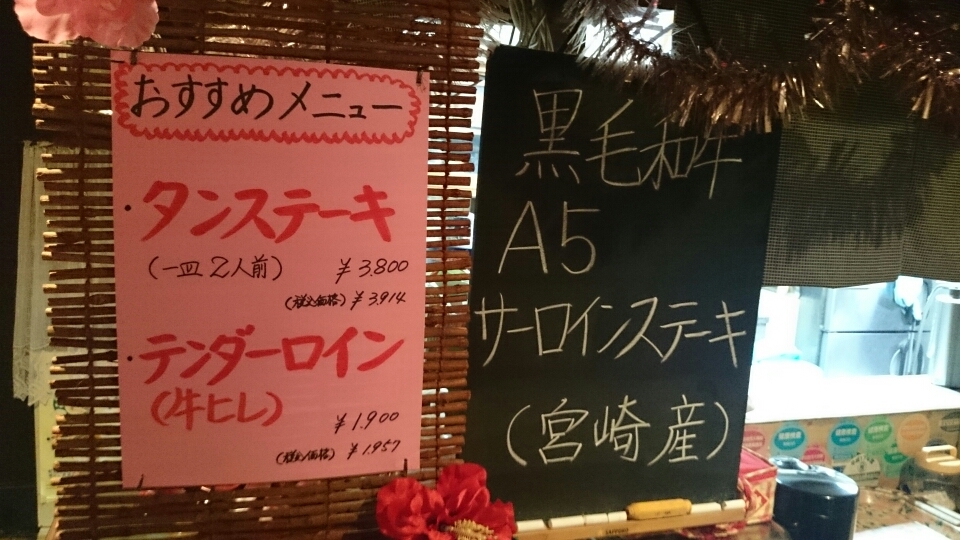 おすすめメニュー
・タンステーキ
(一皿2人前) ¥3.800
(税込価格) ¥3.914
・テンダーロイン
(牛ヒレ)
¥1.900
(税込価格) ¥1.957
黒毛和牛
A5
サーロインステーキ
(宮崎産)